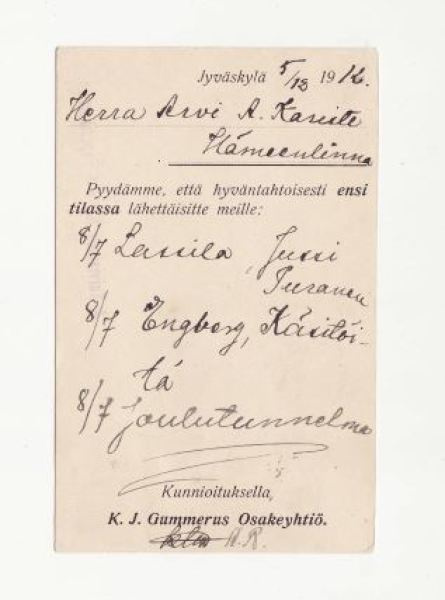 Jyväskylä 5/12 1912.
Herra Arvi A. Karisto
Hämeenlinna
Pyydämme, että hyväntahtoisesti ensi
tilassa lähettäisitte meille:
8/7 Lassila, Jussi
Puranen
8/7 Engberg, Käsitöi-
tä
8/7 Joulutunnelma
Kunnioituksella,
K. J. Gummerus Osakeyhtiö.
A.R.